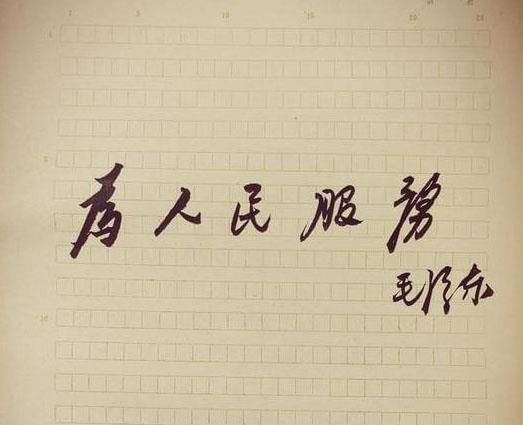 1 5 10 15 20
1
5
為人民服務
毛泽东
10